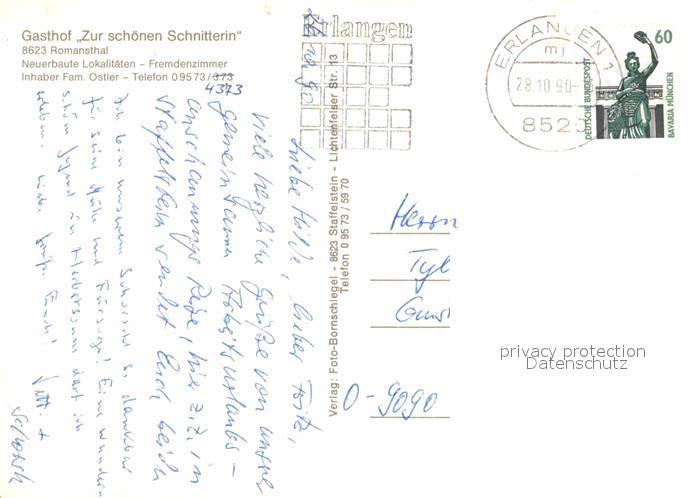 Gasthof „Zur schönen Schnitterin"
8623 Romansthal
Neuerbaute Lokalitäten – Fremdenzimmer
Inhaber Fam. Ostler – Telefon 09573/373
4373
Erlangen
ERLANGEN 1
mj
28.10.90-
852
60
DEUTSCHE BUNDESPOST
BAVARIA MÜNCHEN
Liebe Hilde, lieber Fritz,
viele herzliche Grüße von unserer
gemeinsamen
anschauungs Reise, hier z.Z. in
Staffelstein sendet Euch beiden
Ich bin unserem so dankbar
für seine Mühe und Fürsorge! Eine wunder-
schöne Jugend in darf ich
erleben. Liebe Grüße Euch!
Verlag: Foto-Bornschlegel - 8623 Staffelstein - Lichtenfelser Str. 13
Telefon 0 95 73 / 59 70
Herrn
O-9090
privacy protection
Datenschutz